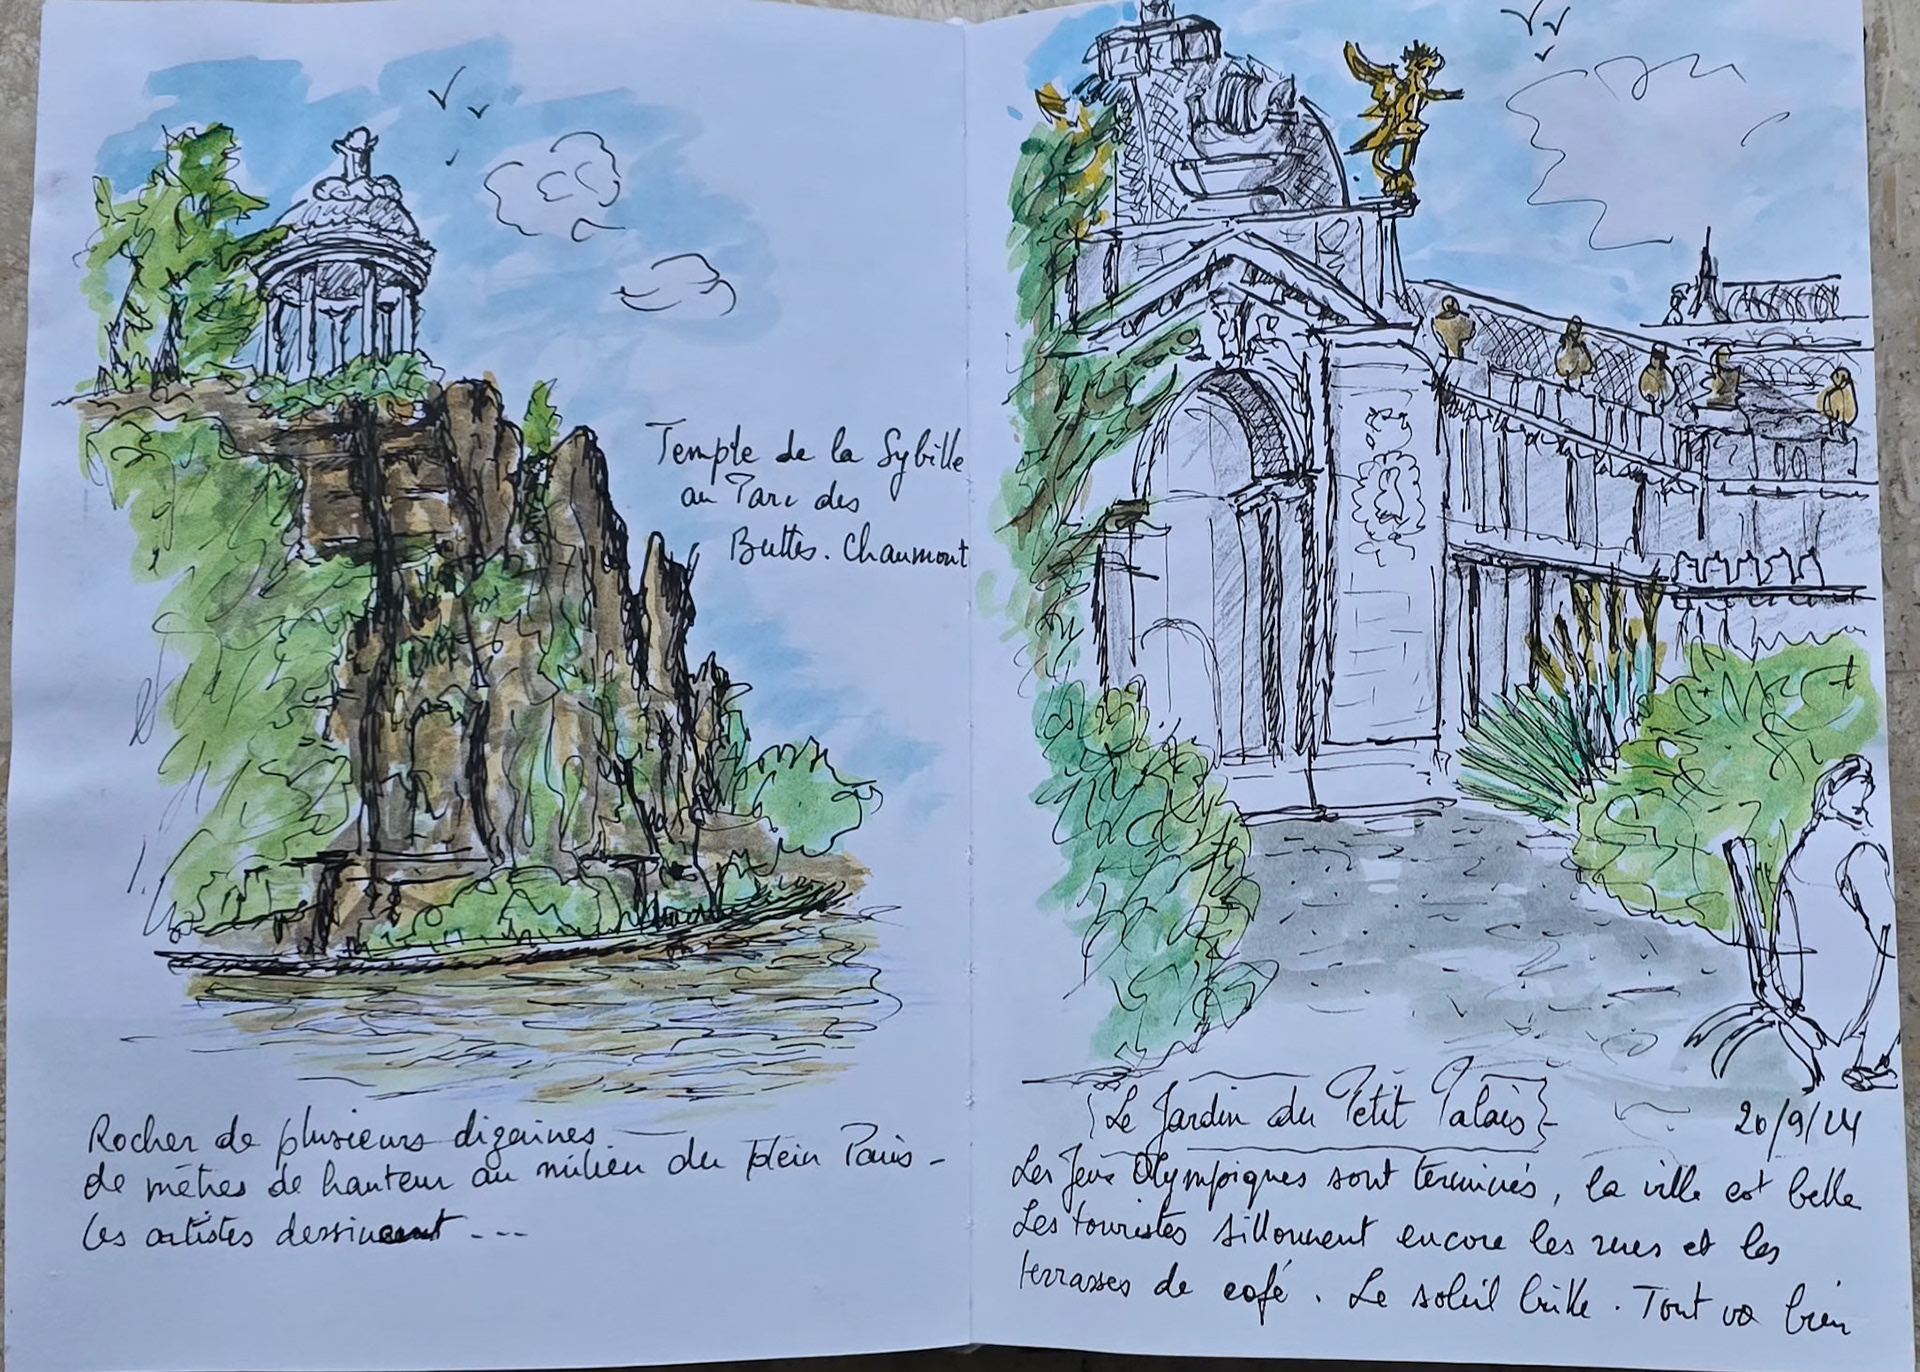 Temple de la Sybille
au Parc des
Buttes. Chaumont
Rocher de plusieurs dizaines
de mètres de hauteur au milieu du plein Paris -
Les artistes dessinent ---
Le Jardin du Petit Palais
20/9/24
Les Jeux Olympiques sont terminés, la ville est belle
Les touristes sillonnent encore les rues et les
terrasses de café. Le soleil brille. Tout va bien